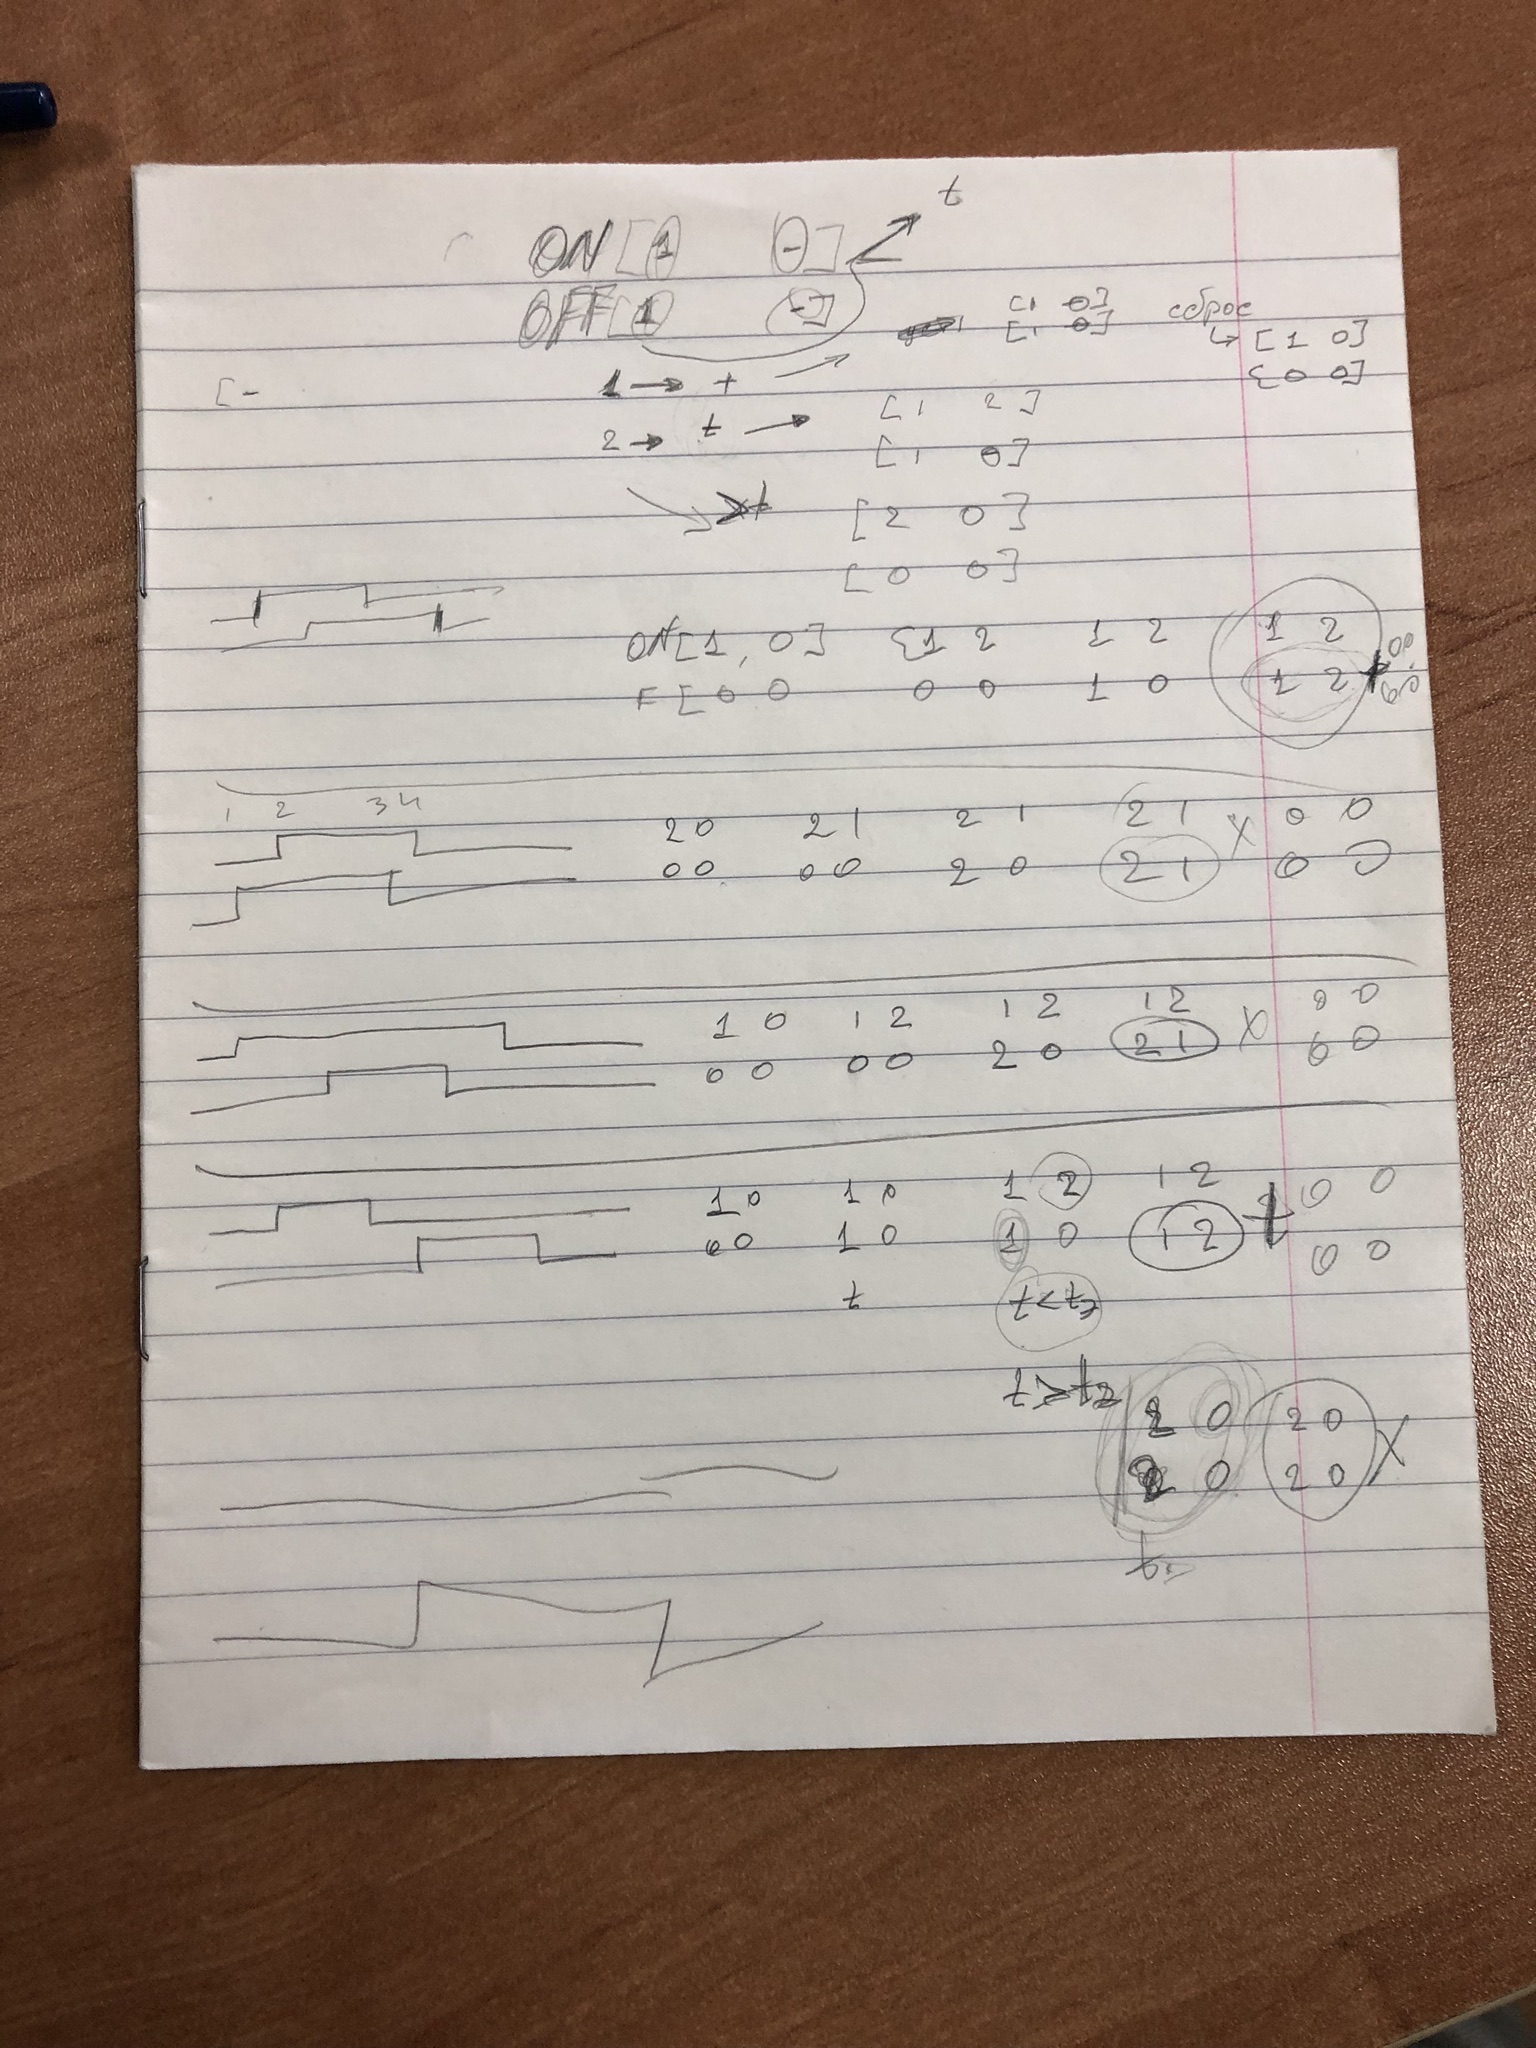 t
ON[1 -]
OFF[1 -]
[1 0] сброс
[1 0] [1 0]
[0 0]
[-
1 → t
2 → t → [1 2]
[1 0]
[2 0]
[0 0]
ON[1, 0] [1 2 1 2 1 2
F[0 0 0 0 1 0 1 2
1 2 3 4
2 0 2 1 2 1 2 1 X 0 0
0 0 0 0 2 0 2 1 0 0
1 0 1 2 1 2 1 2 X 0 0
0 0 0 0 2 0 2 1 0 0
1 0 1 0 1 2 1 2 0 0
0 0 1 0 1 0 1 2 0 0
t t < t2
t ≥ t2
2 0 2 0 X
2 0 2 0